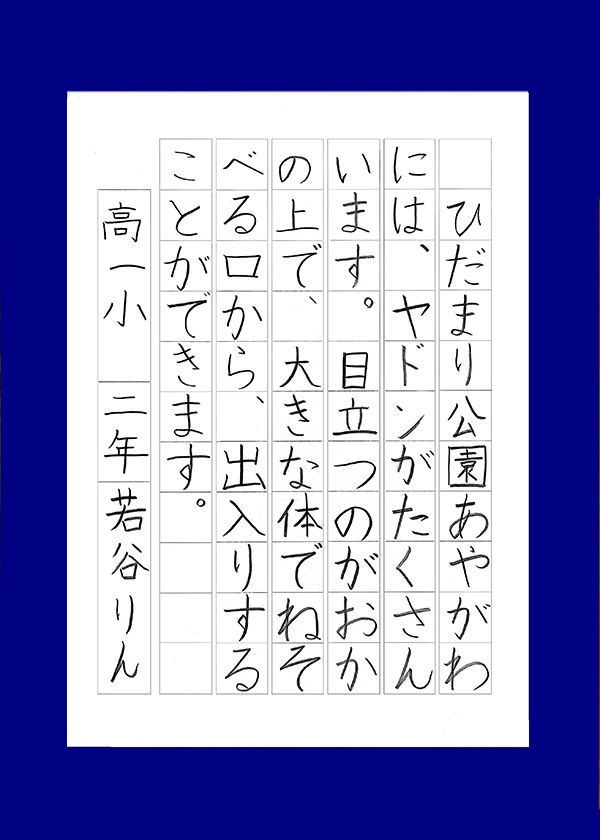 ひだまり公園あやがわ
には、ヤドンがたくさん
います。目立つのがおか
の上で、大きな体でねそ
べる口から、出入りする
ことができます。
高一小 二年 若谷りん